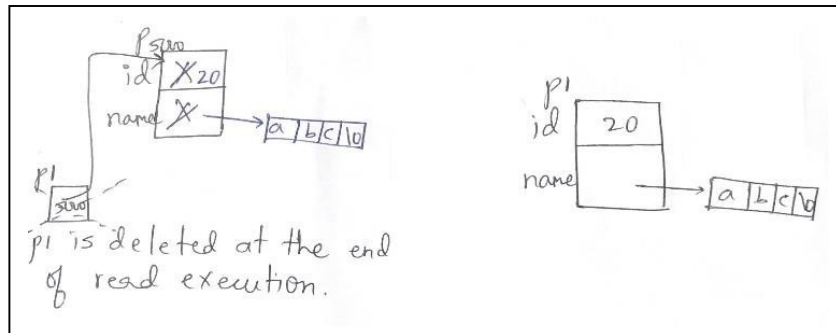 id X 20
name X
a b c \0
p1
p1 is deleted at the end
of read execution.
p1
id 20
name
a b c \0